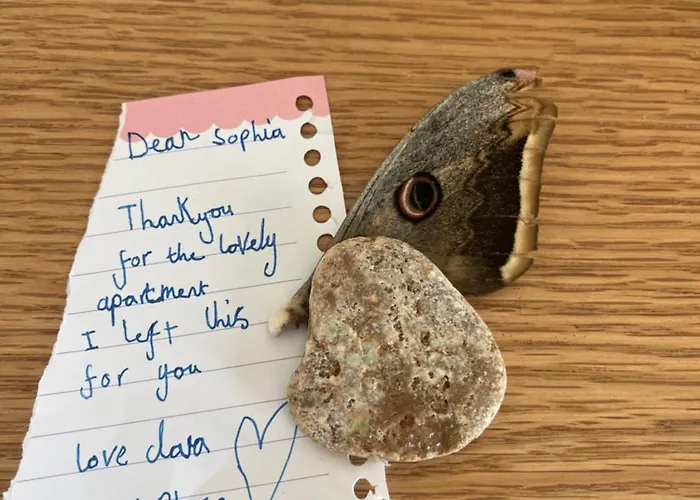 Dear Sophia
Thankyou
for the lovely
apartment
I left this
for you
love clara